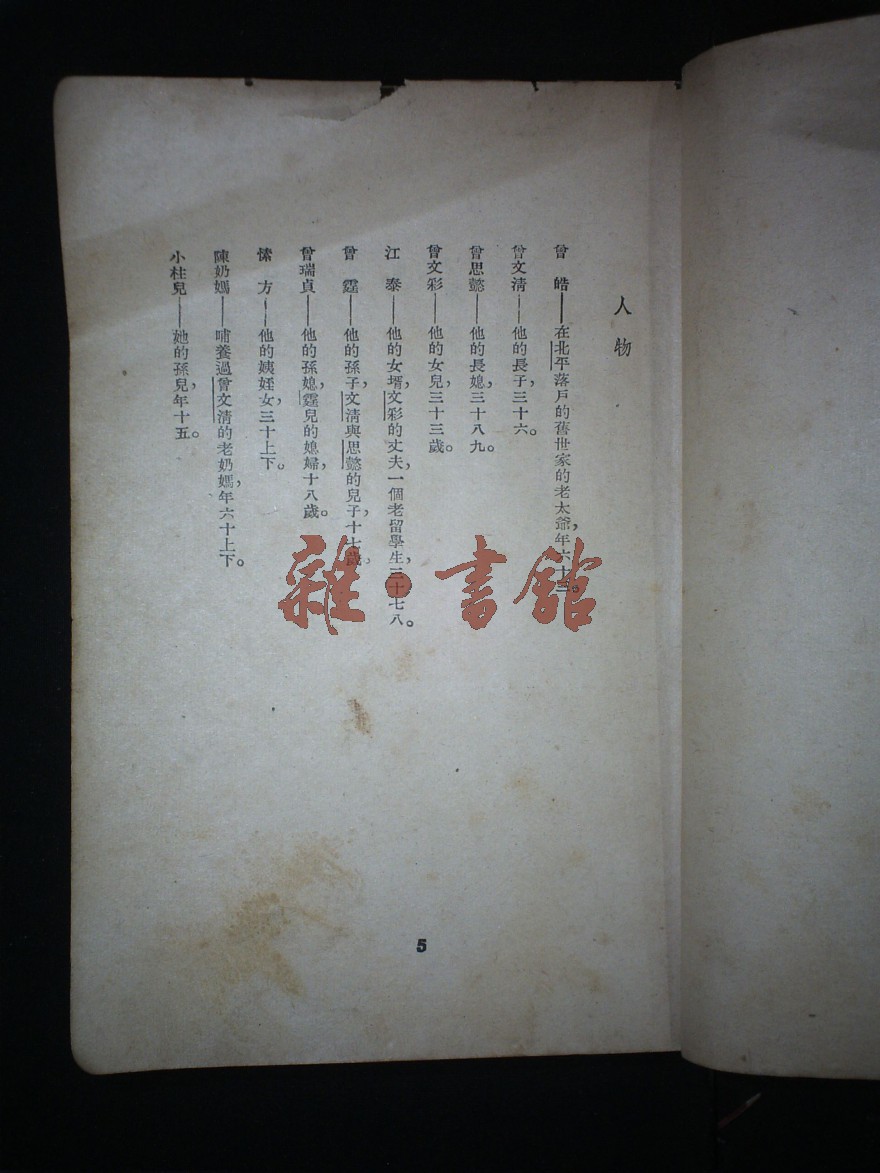 人物
曾　皓——在北平落戶的舊世家的老太爺，年六十三。
曾文清——他的長子三十六。
曾思懿——他的長媳三十八九。
曾文彩——他的女兒三十三歲。
江　泰——他的女壻，文彩的丈夫，一個老留學生，三十七八。
曾　霆——他的孫子，文清與思懿的兒子，十七歲。
曾瑞貞——他的孫媳，霆兒的媳婦，十八歲。
愫　方——他的姨姪女，三十上下。
陳奶媽——哺養過曾文清的老奶媽，年六十上下。
小柱兒——她的孫兒，年十五。
雜·書館
5